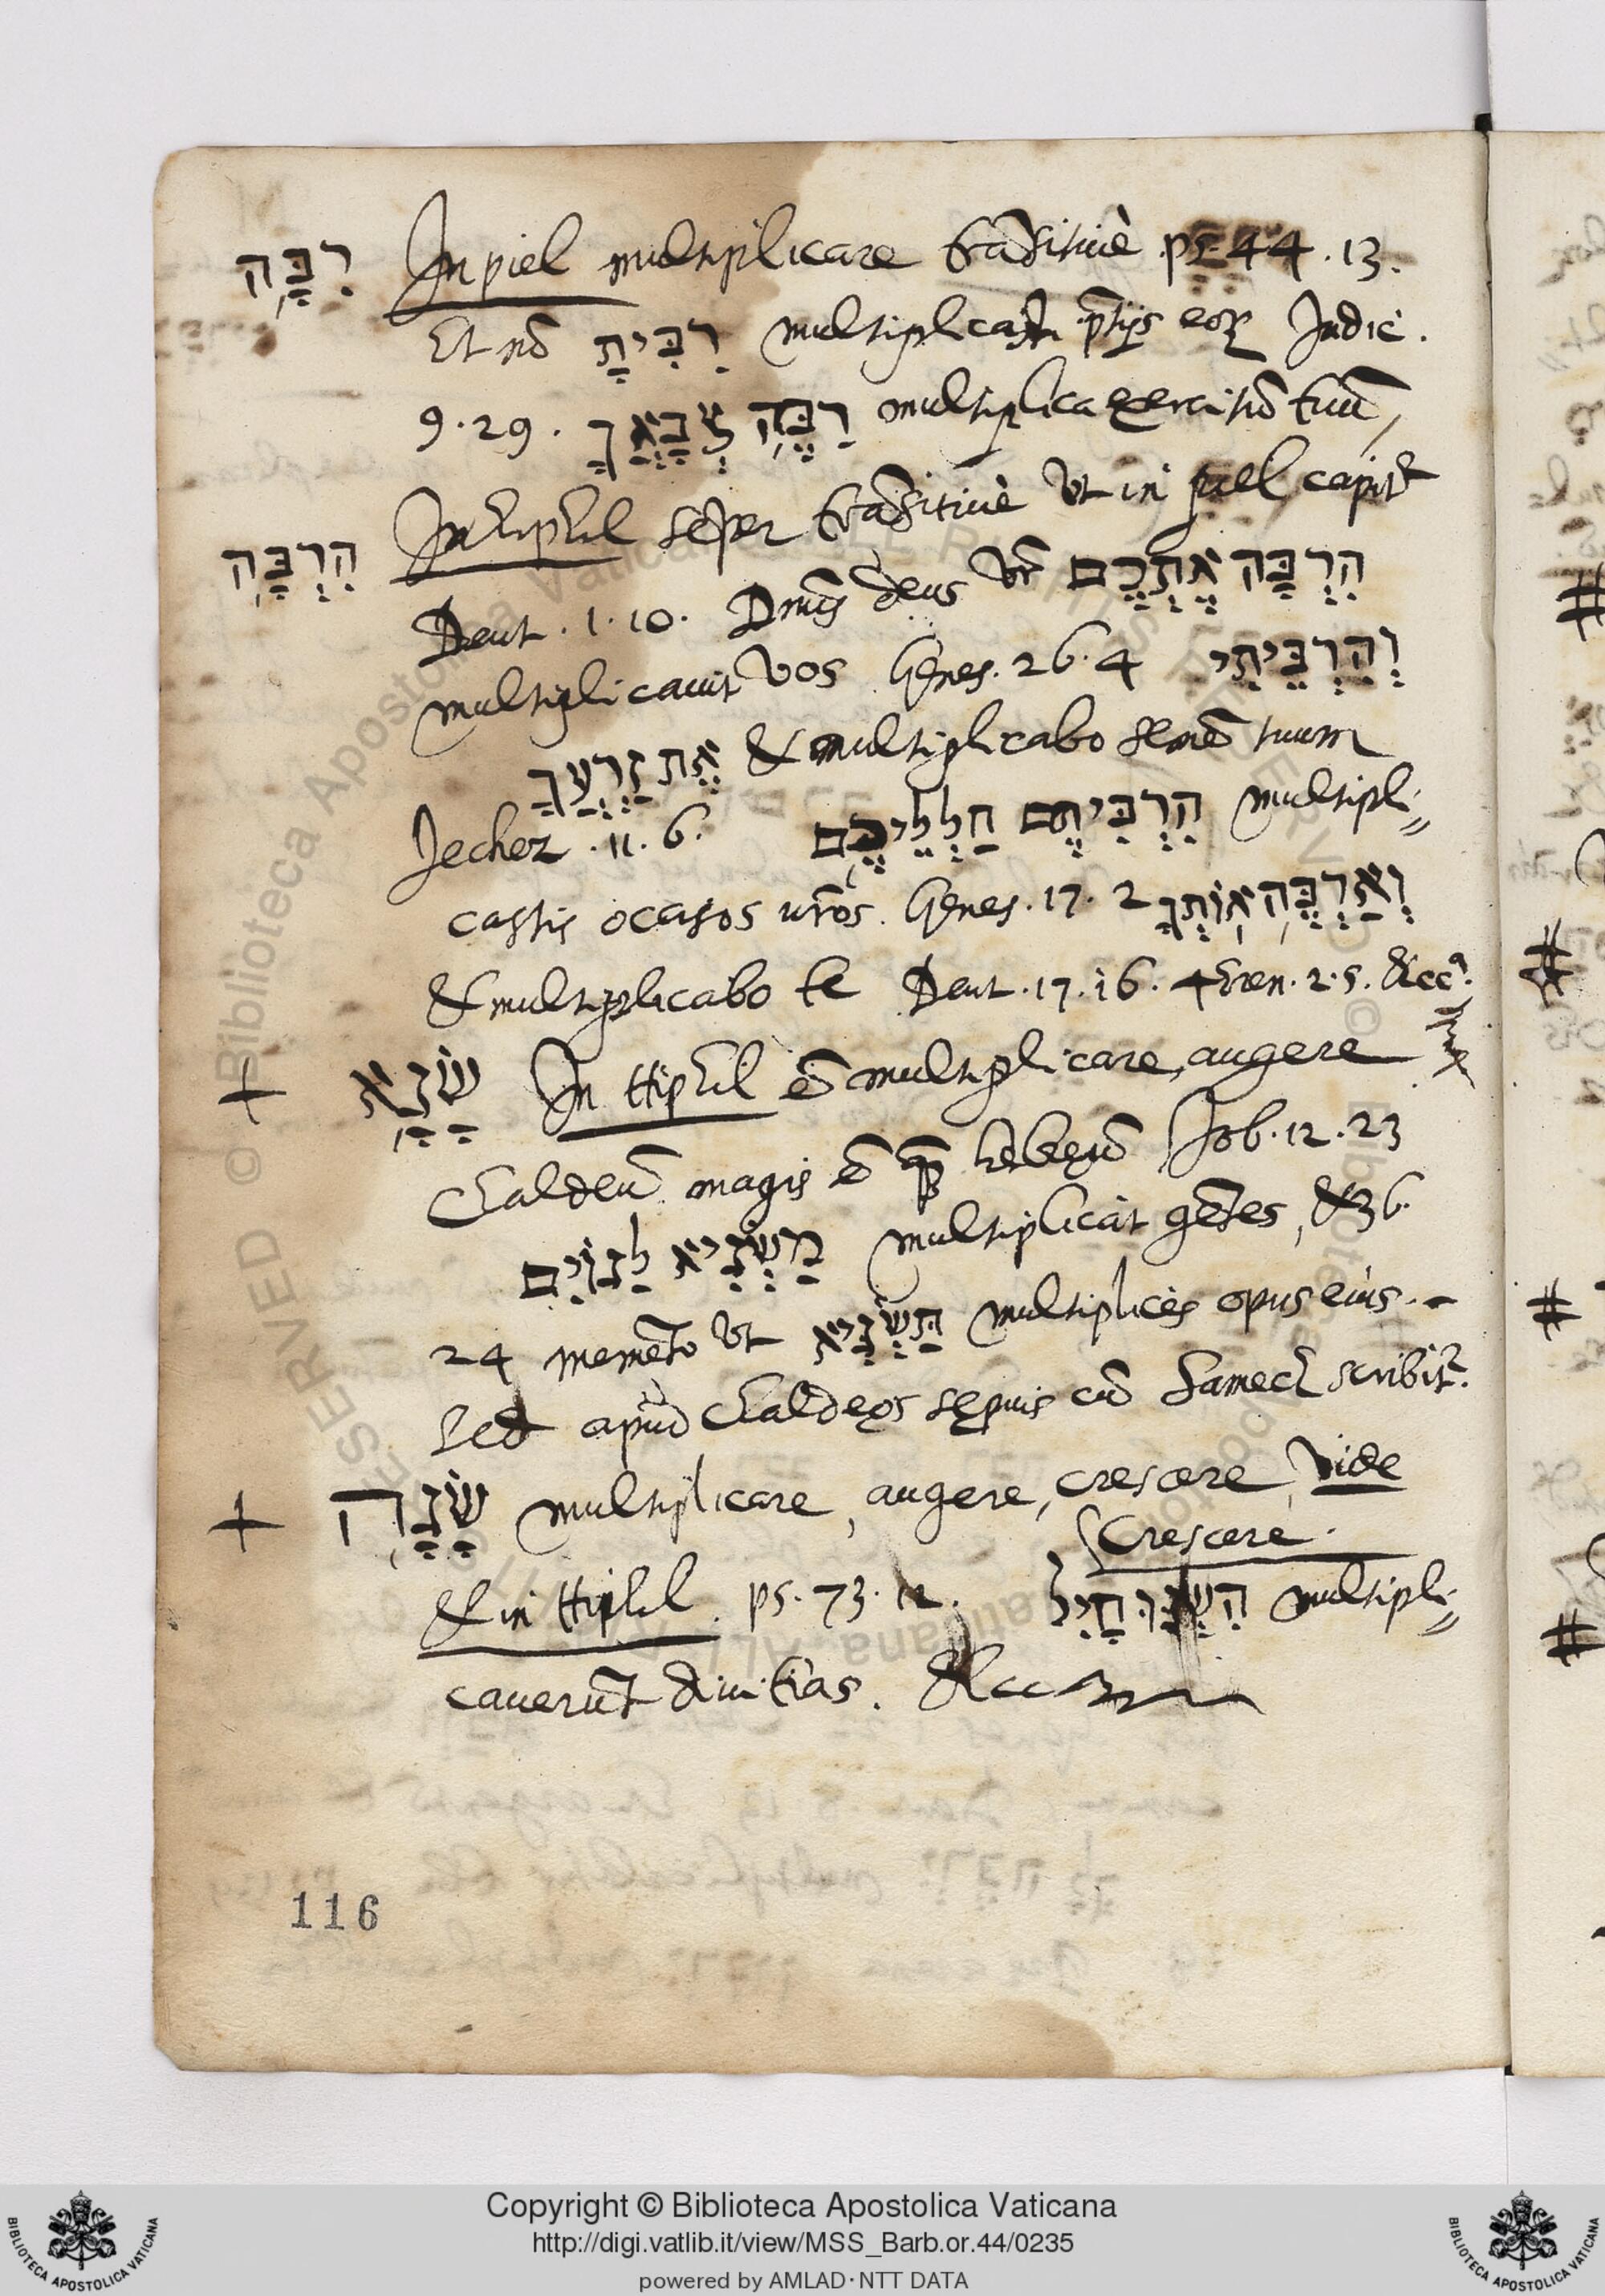 רִבָּה In piel multiplicare trãsitiuè ps. 44. 13.
Et nõ רִבִּיתָ multiplicasti p̃tijs eoꝝ Judic.
9. 29. רַבֶּה צְבָאֲךָ multiplica exercitũ tuũ,
הִרְבָּה In hiphil sẽper trãsitiuè vt in piel, capit᷑
Deut. 1. 10. Dñus deus vr̃ הִרְבָּה אֶתְכֶם
multiplicauit vos Genes. 26. 4 וְהִרְבֵּיתִי
אֶת זַרְעֲךָ & multiplicabo semẽ tuum
Jechez. 11. 6. הִרְבֵּיתֶם חַלְלֵיכֶם multipli⸗
castis ocasos ur̃os. Genes. 17. 2 וְאַרְבֶּה אוֹתְךָ
& multiplicabo te Deut. 17. 16. 4 tren. 2. 5. &cca.
+ שָׂגָא In Hiphil ẽ multiplicare, augere
Chaldeũ magis ẽ quã hebreũ Job. 12. 23
מַשְׂגִּיא לַגּוֹיִם multiplicãt gẽtes, & 36.
24 memẽto vt תַשְׂגִּיא multiplices opus eius. -
Sed apud Chaldeos sepius cũ Samech scribit᷑.
+ שָׂגָה multiplicare, augere, crescere, vide
Crescere.
& in Hiphil. ps. 73. 12. הִשְׂגּוּ חָיִל multipli⸗
cauerũt diuitias. &cc
116
© Biblioteca Apostolica Vaticana ALL RIGHTS RESERVED
Copyright © Biblioteca Apostolica Vaticana
http://digi.vatlib.it/view/MSS_Barb.or.44/0235
powered by AMLAD · NTT DATA
BIBLIOTECA APOSTOLICA VATICANA
BIBLIOTECA APOSTOLICA VATICANA